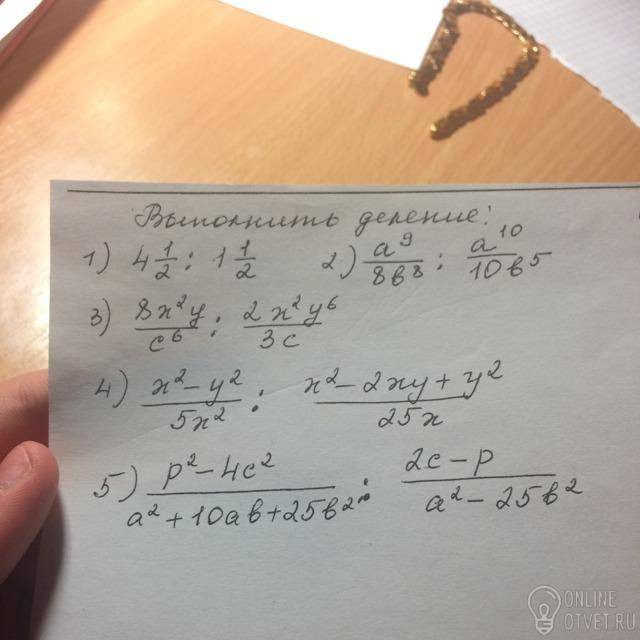 Выполнить деление:
1) 4 1/2 : 1 1/2 2) a⁹/8b⁸ : a¹⁰/10b⁵
3) 8x²y/c⁶ : 2x²y⁶/3c
4) x²-y²/5x² : x²-2xy+y²/25x
5) p²-4c²/a²+10ab+25b² : 2c-p/a²-25b²
ONLINE
OTVET.RU